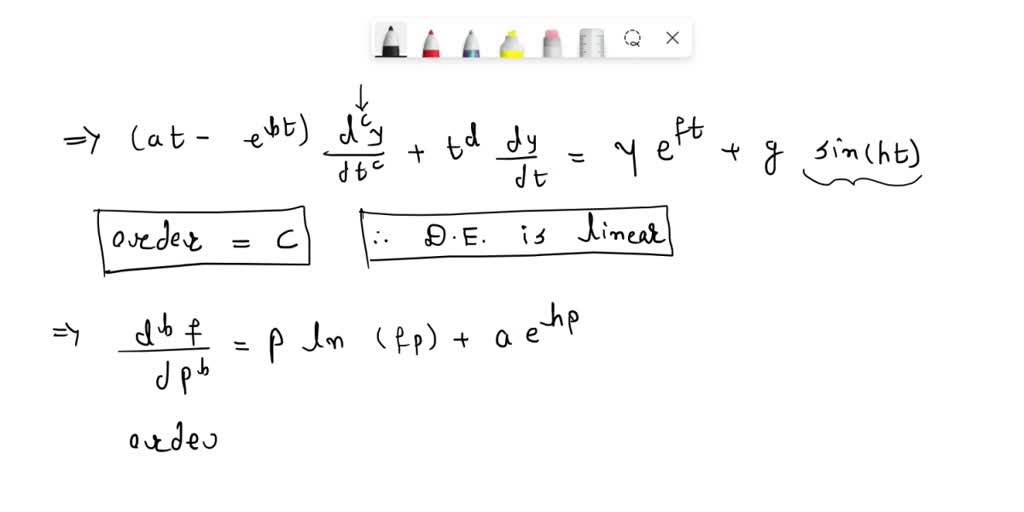 ⇒ (at - e^{bt}) d^c y / dt^c + t^d dy / dt = y e^{ft} + g sin(ht)
order = c ∴ D.E. is linear
⇒ d^b f / dp^b = p ln (fp) + a e^{hp}
order